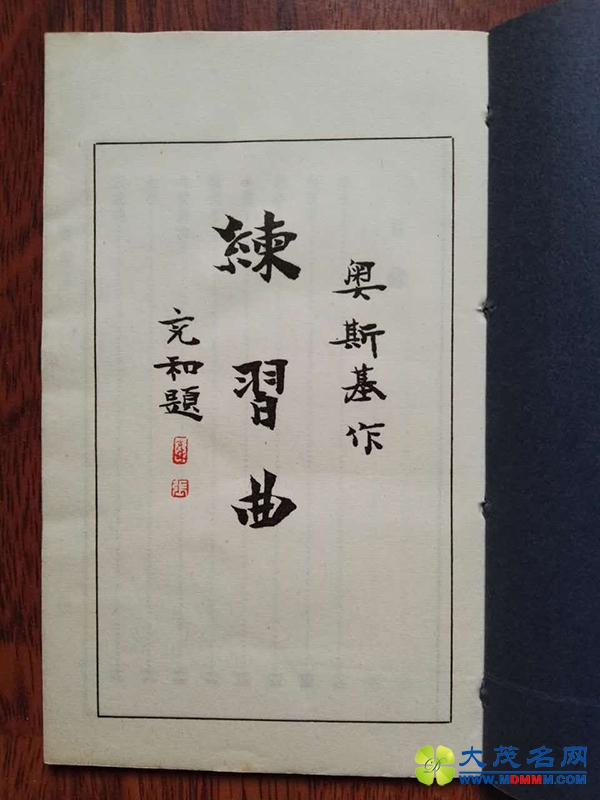 奥斯基作
練習曲
充和題
張
大茂名网
WWW.MDMMM.COM